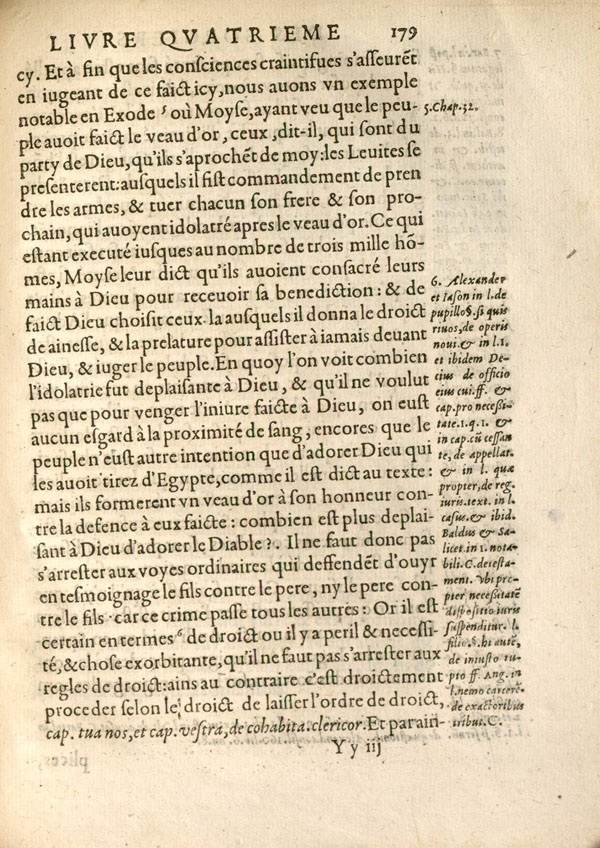 LIVRE QVATRIEME 179
cy. Et à fin que les consciences craintifues s'asseurẽt
en iugeant de ce faict icy, nous auons vn exemple
notable en Exode ⁵ où Moyse, ayant veu que le peu-
ple auoit faict le veau d'or, ceux, dit-il, qui sont du
party de Dieu, qu'ils s'aprochẽt de moy: les Leuites se
presenterent: ausquels il fist commandement de pren
dre les armes, & tuer chacun son frere & son pro-
chain, qui auoyent idolatré apres le veau d'or. Ce qui
estant executé iusques au nombre de trois mille hõ-
mes, Moyse leur dict qu'ils auoient consacré leurs
mains à Dieu pour receuoir sa benediction: & de
faict Dieu choisit ceux-la ausquels il donna le droict
de ainesse, & la prelature pour assister à iamais deuant
Dieu, & iuger le peuple. En quoy l'on voit combien
l'idolatrie fut deplaisante à Dieu, & qu'il ne voulut
pas que pour venger l'iniure faicte à Dieu, on eust
aucun esgard à la proximité de sang, encores que le
peuple n'eust autre intention que d'adorer Dieu qui
les auoit tirez d'Egypte, comme il est dict au texte:
mais ils formerent vn veau d'or à son honneur con-
tre la defence à eux faicte: combien est plus deplai-
sant à Dieu d'adorer le Diable?. Il ne faut donc pas
s'arrester aux voyes ordinaires qui deffendẽt d'ouyr
en tesmoignage le fils contre le pere, ny le pere con-
tre le fils: car ce crime passe tous les autres: Or il est
certain en termes ⁶ de droict ou il y a peril & necessi-
té, & chose exorbitante, qu'il ne faut pas s'arrester aux
regles de droict: ains au contraire c'est droictement
proceder selon le droict de laisser l'ordre de droict,
cap. tua nos, et cap. vestra, de cohabita. clericor. Et par ain-
Y y iij
5. Chap. 32.
6. Alexander
et Iason in l. de
pupillo §. si quis
riuos, de operis
noui. & in l. 1.
et ibidem De-
cius de officio
eius cui. ff. &
cap. pro necessi-
tate. 1. q. 1. &
in cap. cũ cessan
te, de appellat.
& in l. quæ
propter, de reg.
iuris. text. in l.
casus. & ibid.
Baldus & Sa-
licet. in l. nota-
bili. C. de testa-
ment. Vbi pro-
pter necessitatẽ
dispositio iuris
suspenditur. l.
filio §. hi autẽ,
de iniusto ru-
pto ff. Ang. in
l. nemo carcerẽ.
de exactoribus
tribut. C.